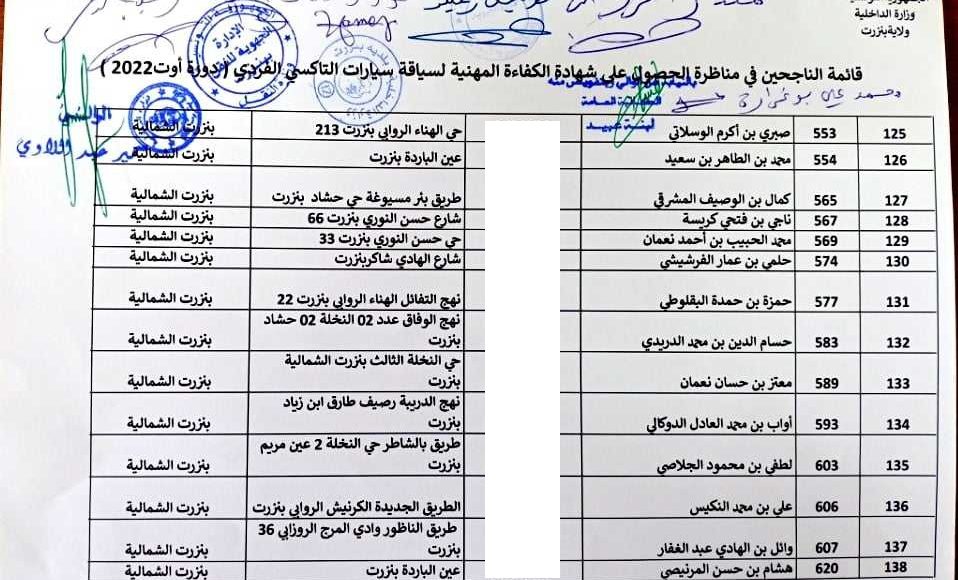 وزارة الداخلية
ولاية بنزرت
قائمة الناجحين في مناظرة الحصول على شهادة الكفاءة المهنية لسياقة سيارات التاكسي الفردي ( دورة أوت2022 )
125 553 صبري بن أكرم الوسلاتي حي الهناء الروابي بنزرت 213 بنزرت الشمالية
126 554 محمد بن الطاهر بن سعيد عين الباردة بنزرت بنزرت الشمالية
127 565 كمال بن الوصيف المشرقي طريق بئر مسيوغة حي حشاد بنزرت بنزرت الشمالية
128 567 ناجي بن فتحي كريسة شارع حسن النوري بنزرت 66 بنزرت الشمالية
129 569 محمد الحبيب بن أحمد نعمان حي حسن النوري بنزرت 33 بنزرت الشمالية
130 574 حلمي بن عمار الفرشيشي شارع الهادي شاكربنزرت بنزرت الشمالية
131 577 حمزة بن حمدة البقلوطي نهج التفائل الهناء الروابي بنزرت 22 بنزرت الشمالية
132 583 حسام الدين بن محمد الدريدي نهج الوفاق عدد 02 النخلة 02 حشاد
بنزرت بنزرت الشمالية
133 589 معتز بن حسان نعمان حي النخلة الثالث بنزرت الشمالية
بنزرت بنزرت الشمالية
134 593 أواب بن محمد العادل الدوكالي نهج الدريبة رصيف طارق ابن زياد
بنزرت بنزرت الشمالية
135 603 لطفي بن محمود الجلاصي طريق بالشاطر حي النخلة 2 عين مريم
بنزرت بنزرت الشمالية
136 606 علي بن محمد النكيس الطريق الجديدة الكرنيش الروابي بنزرت بنزرت الشمالية
137 607 وائل بن الهادي عبد الغفار طريق الناظور وادي المرج الروزابي 36
بنزرت بنزرت الشمالية
138 620 هشام بن حسن المرنيصي عين الباردة بنزرت بنزرت الشمالية